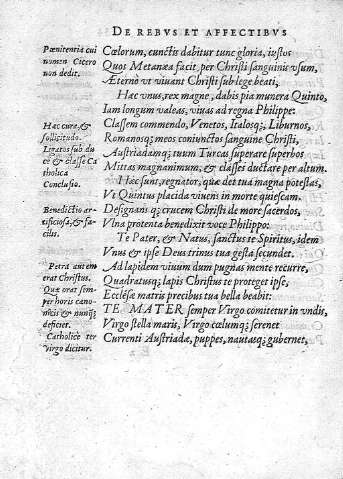 DE REBVS ET AFFECTIBVS
Pœnitentia cui
nomen Cicero
non dedit.
Cœlorum, cunctis dabitur tunc gloria, iustos
Quos Metanœa facit, per Christi sanguinis vsum,
Æternò vt viuant Christi sub lege beati,
Hac vnus, rex magne, dabis pia munera Quinto,
Iam longum valeas, viuas ad regna Philippe:
Hac cura, &
sollicitudo.
Ligatos sub du
ce & classe Ca
tholica
Conclusio.
Classem commendo, Venetos, Italosq;, Liburnos,
Romanosq; meos coniunctos sanguine Christi,
Austriadamq; tuum Turcas superare superbos
Mittas magnanimum, & classes ductare per altum.
Hæc sunt, regnator, quæ det tua magna potestas,
Vt Quintus placida viuens in morte quiescam.
Benedictio ar-
tificiosa, & fa-
cilis.
Designans q; crucem Christi de more sacerdos,
Vlna protenta benedixit voce Philippo:
Te Pater, & Natus, sanctus te Spiritus, idem
Vnus & ipse Deus trinus tua gesta secundet.
Petra autem
erat Christus.
Quæ orat sem-
per horis cano-
nicis & nunq;
deficiet.
Catholicè ter
virgo dicitur.
Ad lapidem viuum dum pugnas mente recurre,
Quadratusq; lapis Christus te proteget ipse,
Ecclesæ matris precibus tua bella beabit:
TE MATER semper Virgo comitetur in vndis,
Virgo stella maris, Virgo cœlumq; serenet
Currenti Austriadæ, puppes, nautasq; gubernet,